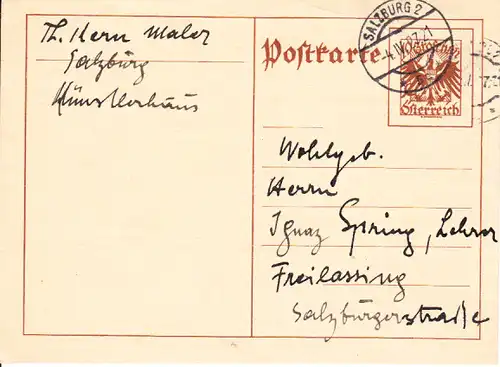 Th. Kern Maler
Salzburg
Künstlerhaus
Postkarte
SALZBURG 2
Österreich
Wohlgeb.
Herrn
Ignaz Spring, Lehrer
Freilassing
Salzburgerstraße